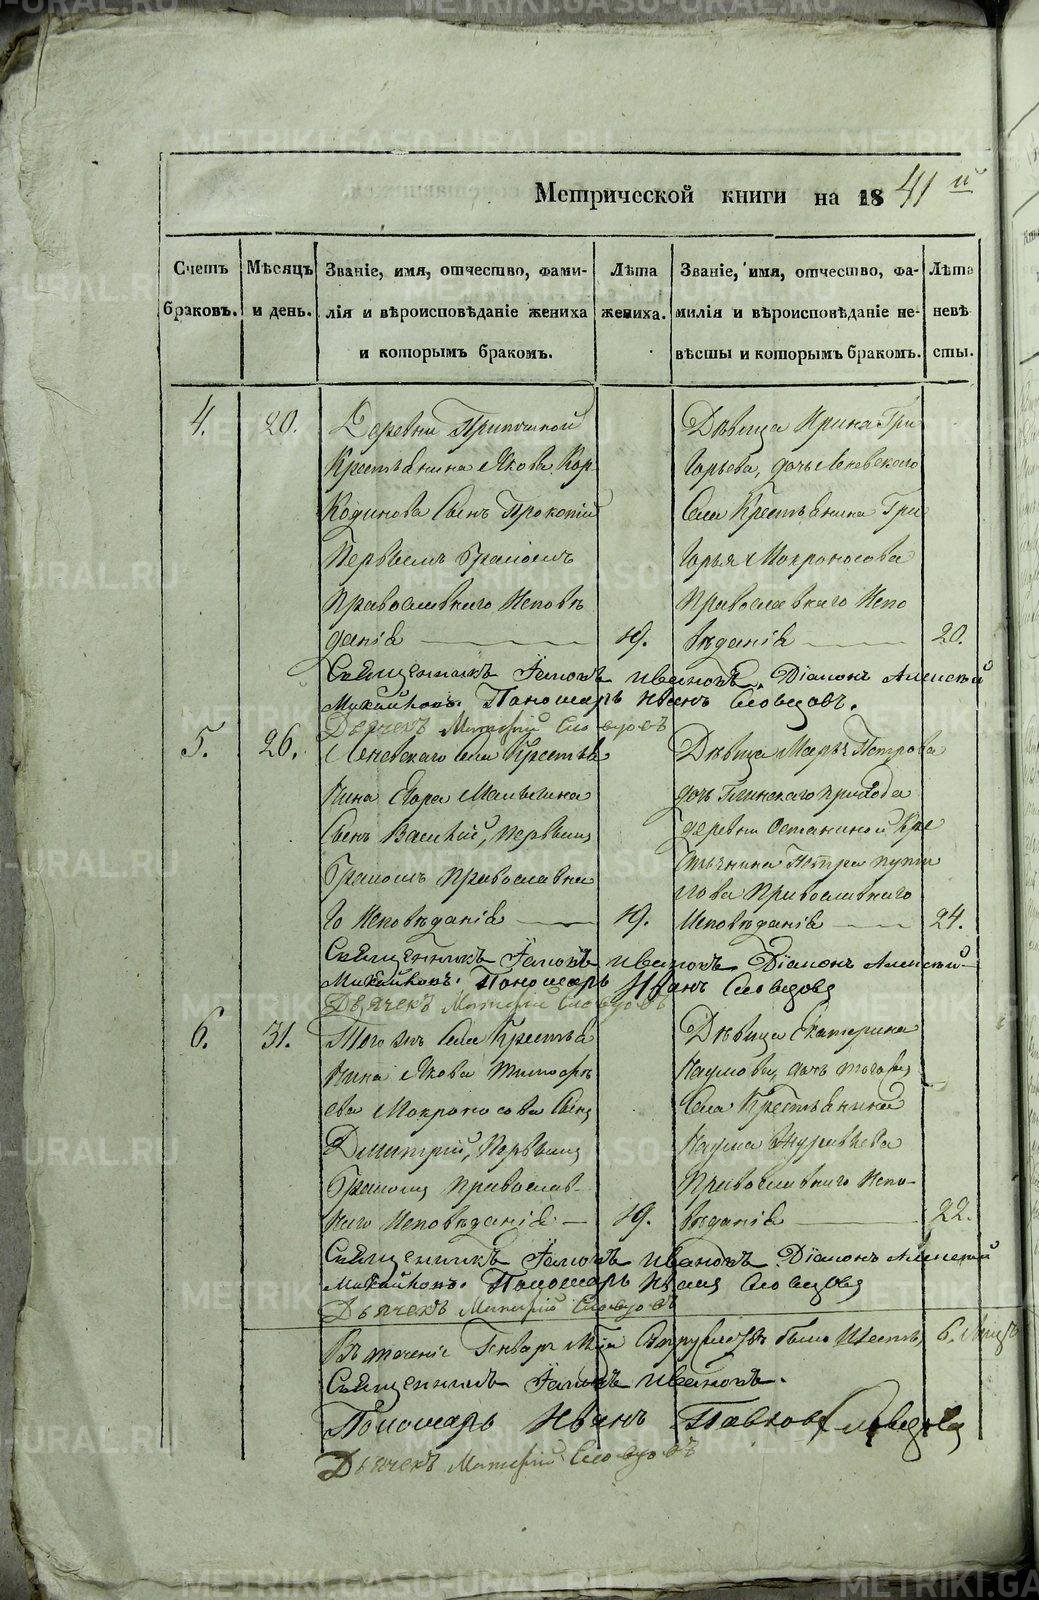 Метрической книги на 1841й
Счетъ браковъ.
Мѣсяцъ и день.
Званіе, имя, отчество, фами-
лія и вѣроисповѣданіе жениха
и которымъ бракомъ.
Лѣта жениха.
Званіе, имя, отчество, фа-
милія и вѣроисповѣданіе не-
вѣсты и которымъ бракомъ.
Лѣта невѣ
сты.
4.
20.
Деревни
Крестьянина Якова Кор
Кодинова Сынъ Прокопій
Первымъ бракомъ
Православнаго Исповѣ
данія
19.
Дѣвица Ирина Гри
горьева, дочь Леневскаго
Села Крестьянина Гри
горья Мокроносова
Православнаго Испо
вѣданія
20.
Священникъ Іаковъ Ивановъ. Діаконъ Алексѣй
Михайловъ. Пономарь Иванъ Словцовъ.
Дьячекъ Словцовъ
5.
26.
Леневскаго Села Крестья
нина Егора Малыгина
Сынъ Василій, первымъ
бракомъ Православна
го Исповѣданія
19.
Дѣвица Марья Петрова
дочь Глинскаго прихода
деревни Останиной Кре
стьянина Петра
Православнаго
Исповѣданія
24.
Священникъ Іаковъ Ивановъ. Діаконъ Алексѣй
Михайловъ. Пономарь Иванъ Словцовъ
Дьячекъ Словцовъ
6.
31.
Того жъ Села Крестья
нина Якова Тимофѣ
ева Мокроносова Сынъ
Дмитрій, Первымъ
бракомъ Православ-
наго Исповѣданія
19.
Дѣвица Екатерина
Наумова, дочь тогожъ
Села Крестьянина
Наума
Православнаго Испо-
вѣданія
22.
Священникъ Іаковъ Ивановъ. Діаконъ Алексѣй
Михайловъ. Пономарь Иванъ Словцовъ
Дьячекъ Словцовъ
Въ теченіе Генваря М-ца было Шесть, 6.
Священникъ Іаковъ Ивановъ.
Пономарь Иванъ Павловъ Словцовъ
Дьячекъ Словцовъ
METRIKI.GASO-URAL.RU